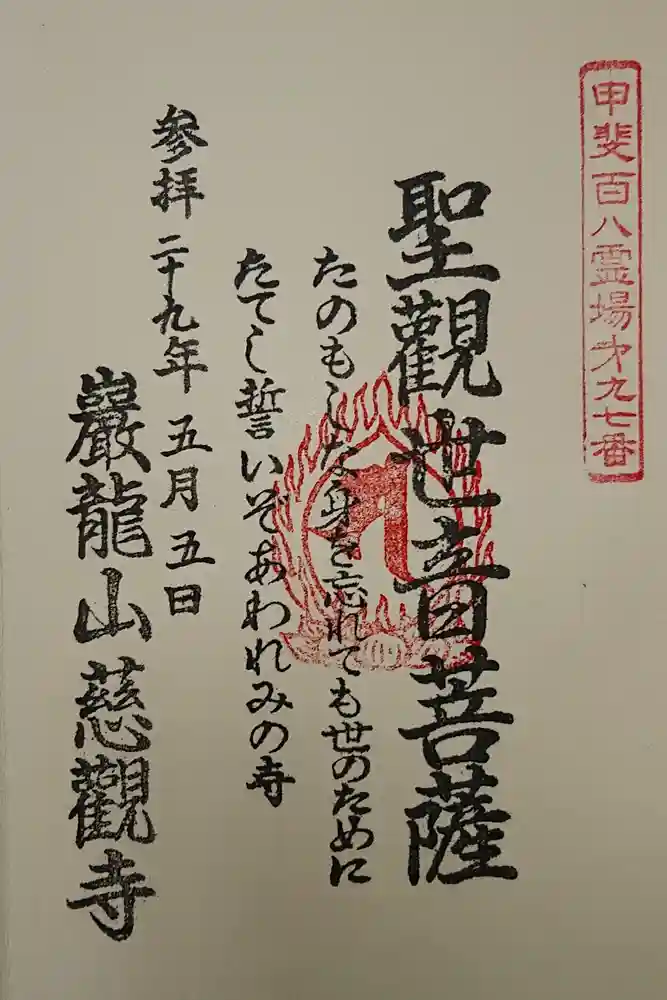 甲斐百八霊場才九七番
聖觀世音菩薩
たのもしな身を忘れても世のために
たてし誓いぞあわれみの寺
参拝 二十九年 五月五日
巖龍山慈觀寺